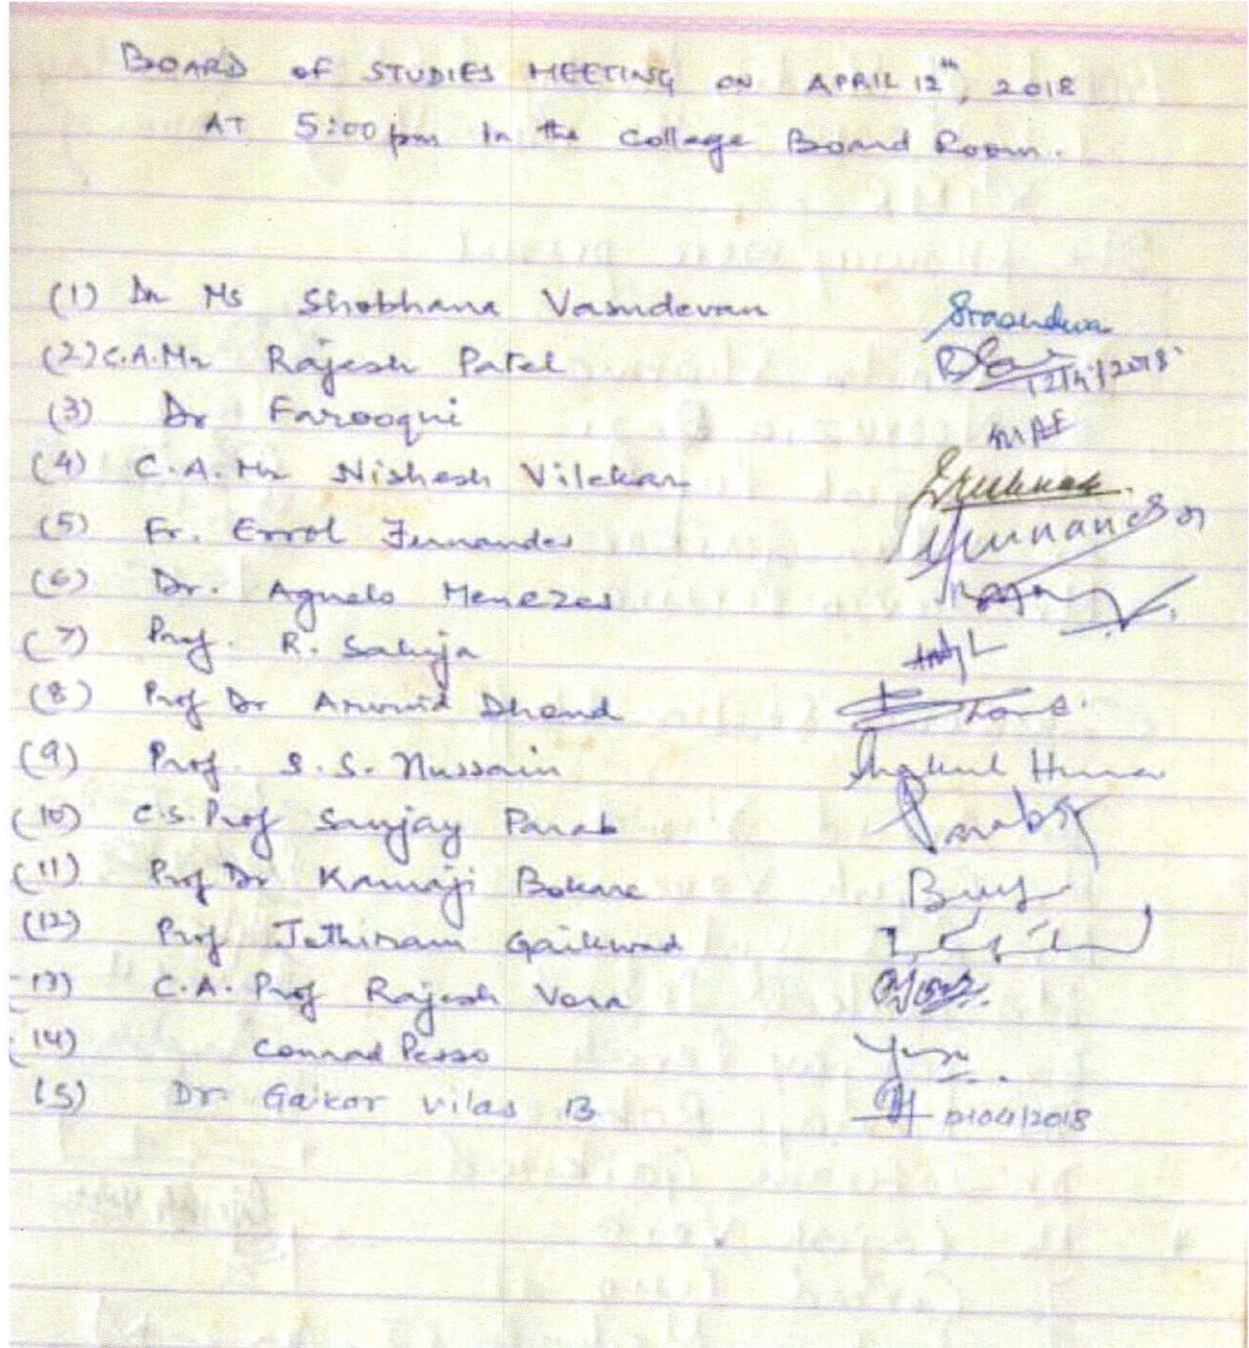 BOARD OF STUDIES MEETING ON APRIL 12th, 2018
AT 5:00 pm in the College Board Room.
(1) Dr Ms Shobhana Vasudevan
(2) C.A.Mr Rajesh Patel 12/4/2018
(3) Dr Farooqui MAF
(4) C.A. Mr Nishesh Vilekar
(5) Fr. Errol Fernandes
(6) Dr. Agnelo Menezes
(7) Prof. R. Saluja
(8) Prof Dr Arvind Dhond
(9) Prof. S.S. Hussain
(10) C.S. Prof Sanjay Parab Parab
(11) Prof Dr Kamaji Bokare
(12) Prof Tathiram Gaikwad
13) C.A. Prof Rajesh Vora
14) Conrad Pesso
15) Dr Gaikar Vilas B